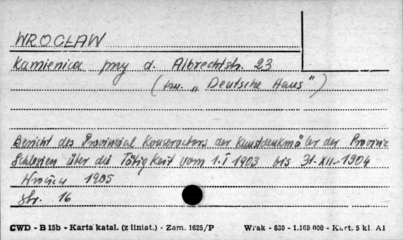 WROCŁAW
Kamienica przy d. Albrechtstr. 23
(zw. „Deutsche Haus")
Bericht des Provinzial Konservators der Kunstdenkmäler der Provinz
Schlesien über die Tätigkeit vom 1.I 1903 bis 31.XII-1904
Wrocław 1905
str. 16
CWD - B 15b - Karta katal. (z liniat.) - Zam. 1625/P
Wrak - 630 - 1.169.000 - Kart. 5 kl. A1